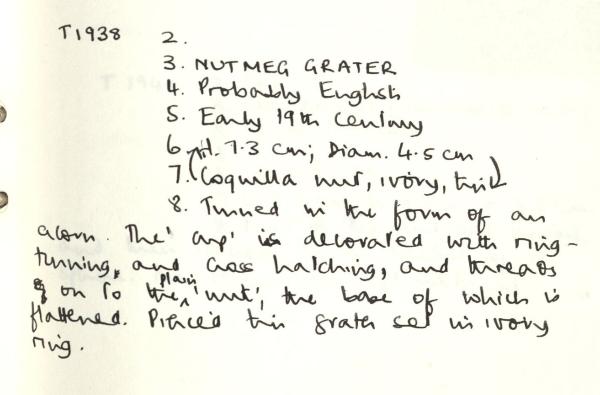 T1938 2.
3. NUTMEG GRATER
4. Probably English
5. Early 19th Century
6. (H. 7.3 cm; Diam. 4.5 cm)
7. (Coquilla nut, ivory, tin)
8. Turned in the form of an
acorn. The 'cup' is decorated with ring-
turning, and cross hatching, and threads
on to the plain 'nut', the base of which is
flattened. Pierced tin grater set in ivory
ring.